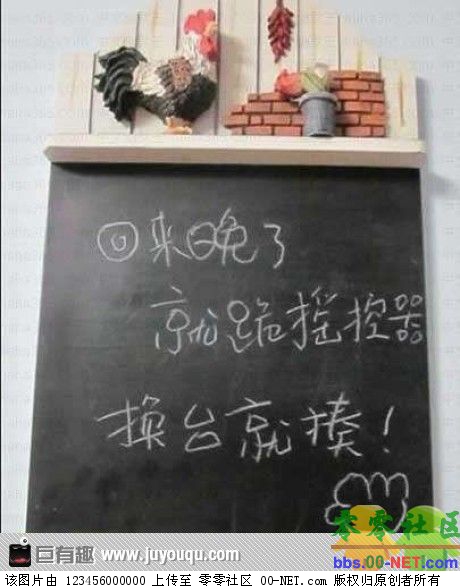 回来晚了
就跪摇控器
换台就揍！
零零社区
bbs.00-NET.com
巨有趣 www.juyouqu.com
该图片由 123456000000 上传至 零零社区 00-NET.com 版权归原创者所有